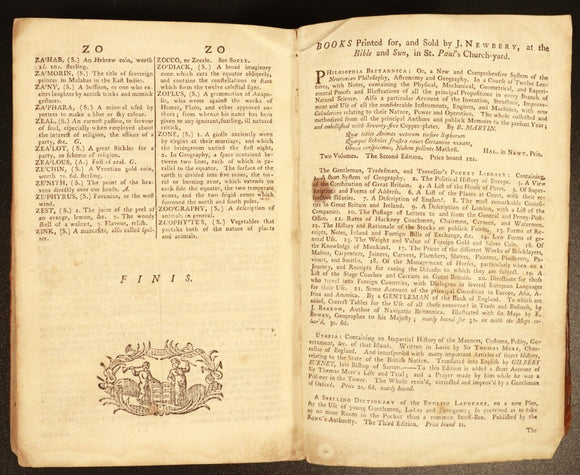 ZO
ZO
ZA'HAB, (S.) An Hebrew coin, worth
1l. 10s. sterling.
ZA'MORIN, (S.) The title of sovereign
princes in Malabar in the East Indies.
ZA'NY, (S.) A buffoon, or one who ex-
cites laughter by antick tricks and mimick
gestures.
ZA'PHARA, (S.) A mineral used by
potters to make a blue or sky colour.
ZEAL, (S.) An earnest passion, or fervour
of soul, especially when employed about
the interest of religion, the affairs of a
party, &c. G.
ZEA'LOT, (S.) A great stickler for a
party, or scheme of religion.
ZEA'LOUS, (A.) Full of zeal. G.
ZE'CHIN, (S.) A Venetian gold coin,
worth 2s. 6d. sterling.
ZENITH, (S.) The point of the hea-
vens directly over our heads. A.
ZE'PHYRUS, (S.) Favonius, or the west
wind.
ZEST, (S.) 1. The juice of the peel of
an orange, lemon, &c. 2. The woody
shell of a walnut. 3. Flavour, relish.
ZINK, (S.) A marcasite, also called spel-
ter.
ZOCCO, or Zoccle. See SOCLE.
ZO'DIACK, (S.) A broad imaginary
zone which cuts the equator obliquely,
and contains the constellations or stars
which form the twelve celestial signs.
ZOILUS, (S.) A grammarian of Amphi-
polis, who wrote against the works of
Homer, Plato, and other approved au-
thors; from whence his name has been
given to any ignorant, snarling, ill natured
critick.
ZONE, (S.) 1. A girdle anciently worn
by virgins at their marriage, and which
the bridegroom untied the first night.
2. In Geography, a space contained be-
tween two lines, each of which is pa-
rallel to the equator. The surface of the
earth is divided into five zones, the tor-
rid or burning zone, which extends on
each side the equator, the two temperate
zones, and the two frigid zones which
surround the north and south poles.
ZOO'GRAPHY, (S.) A description of
animals.
ZEOPHYTES, (S.) Vegetables that
partake both of the nature of plants
and animals.
FINIS.
BOOKS Printed for, and Sold by J. NEWBERY, at the
Bible and Sun, in St. Paul's Church-yard.
PHILOSOPHIA BRITANNICA: Or, a New and Comprehensive System of the
Newtonian Philosophy, Astronomy and Geography. In a Course of Twelve Lec-
tures, with Notes, containing the Physical, Mechanical, Geometrical, and Experi-
mental Proofs and Illustrations of all the principal Propositions in every Branch of
Natural Science. Also a particular Account of the Invention, Structure, Improve-
ment and Use of all the considerable Instruments, Engines, and Machines, with new
Calculations relating to their Nature, Power and Operation. The whole collected and
methodized from all the principal Authors and publick Memoirs to the present Year;
and embellished with Seventy-five Copper-plates. By B. MARTIN.
Quæ toties animos veterum torsere Sophorum
Quæque Scholas frustra rauco Certamine vexant,
Obvia conspicimus, Nubem pellente Mathesi.
HAL. in NEWT. Prin.
Two Volumes. The Second Edition. Price bound 12s.
The Gentleman, Tradesman, and Traveller's POCKET LIBRARY: Containing,
1. A short System of Geography. 2. The Political History of Europe. 3. A View
of the Constitution of Great Britain. 4. A List of the House of Peers. 5. Of Super-
scription and Forms of Address. 6. A List of the Places at Court, with their an-
nual Salaries. 7. A Description of England. 8. The most remarkable Curiosi-
ties in Great Britain and Ireland. 9. A Description of London. 10. A List of the
Companies. 10. The Postage of Letters to and from the General and Penny-Post-
Office. 11. Rates of Hackney Coachmen, Chairmen, Carmen, and Watermen.
12. The History and Rationale of the Stocks or publick Funds. 13. Forms of Re-
ceipts, Notes, Inland and Foreign Bills of Exchange, &c. 14. Law Forms of ge-
neral Use. 15. The Weight and Value of Foreign Gold and Silver Coin. 16. Of
the Knowledge of Mankind. 17. The Prices of the different Works of Bricklayers,
Masons, Carpenters, Joiners, Carvers, Plumbers, Slaters, Painters, Plaisterers, Pa-
viours, and Smiths. 18. Of the Management of Horses, particularly when on a
Journey, and Receipts for curing the Diseases to which they are subject. 19. A
List of the Stage Coaches and Carriers in Great Britain. 20. Directions for those
who travel into Foreign Countries, with Dialogues in several European Languages
for their Use. 21. Some Account of the principal Curiosities in Europe, Asia, A-
frica and America. By a GENTLEMAN of the Bank of England. To which are
added, Correct Tables for the Use of all those concerned in Trade and Business, by
J. BARROW, Author of Navigatio Britannica. Illustrated with six Maps by E.
BOWEN, Geographer to his Majesty; neatly bound for 3s. or with the Maps co-
lour'd, 3s. 6d.
UTOPIA: Containing an Impartial History of the Manners, Customs, Polity, Go-
vernment, &c. of that Island. Written in Latin by Sir THOMAS MORE, Chan-
cellor of England. And interspersed with many important Articles of secret History,
relating to the State of the British Nation. Translated into English by GILBERT
BURNET, late Bishop of Sarum.—To this Edition is added a short Account of
Sir Thomas More's Life and Trial; and a Prayer made by him while he was a
Prisoner in the Tower. The Whole revis'd, corrected and improv'd by a Gentleman
of Oxford. Price 2s. 6d. neatly bound.
A SPELLING DICTIONARY of the ENGLISH LANGUAGE, on a new Plan,
for the Use of young Gentlemen, Ladies and Foreigners; so contrived as to take
up no more Room in the Pocket than a common Snuff-Box. Published by the
KING's Authority. The Third Edition. Price bound 1s.
The